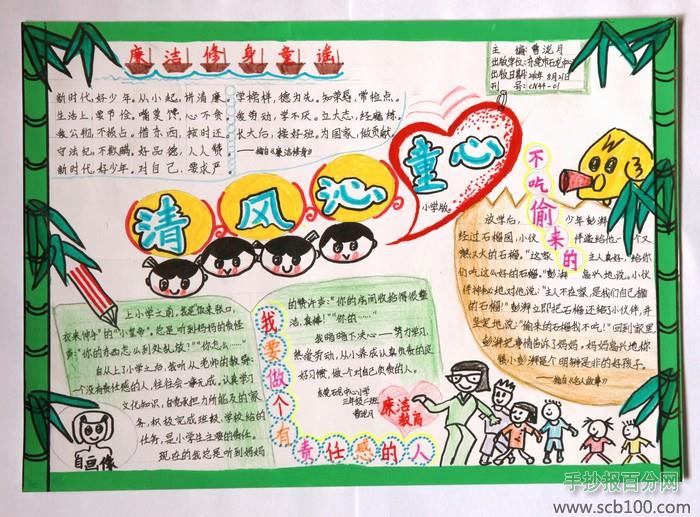 廉洁修身童谣
新时代,好少年。从小起,讲清廉。
生活上,要节俭。嘴莫馋,心不贪
教公物,不损占。借东西,按时还
守法纪,不欺瞒。好品德,人人赞
新时代,好少年。对自己,要求严。
学榜样,德为先。知荣辱,常检点。
爱劳动,学不厌。立大志,经磨练。
长大后,接好班。为国家,做贡献。
——摘自《廉洁修身》
主 编:曹泷月
出版学校:东莞市石龙中心小学
出版日期:8月21日
刊 号:CN44-01
清风沁童心
小学版
不吃偷来的
放学后,
少年彭湃
经过石榴园,小伙
伴递给他一个又
想从大的石榴。"这家
主人真好,给你
们吃这么好的石榴。"彭湃
高兴地说。小伙
伴神秘地对他说:"主人不在家,是我们自己摘
的石榴!"彭湃立即把石榴还给小伙伴,并
坚定地说:"偷来的石榴我不吃!"回到家里
彭湃把事情告诉了妈妈,妈妈高兴地称
赞小彭湃是个明辨是非的好孩子。
——摘自《名人故事》
上小学之前,我是"饭来张口,
衣来伸手"的"小皇帝",总是听到妈妈的责怪
声:"你的东西怎么到处乱放?""你怎么……"
自从上了小学之后,我听从老师的教导:
一个没有责任感的人,往往会一事无成。认真学习
文化知识,自觉承担力所能及的家
务,积极完成班级、学校给的
任务,是小学生主要的责任。
现在的我总是听到妈妈
的赞许声:"你的房间收拾得很整
洁,真棒!""你的……"
我暗暗下决心——努力学习,
热爱劳动,从小养成认真负责的良
好习惯,做一个对自己负责的人。
东莞石龙中心小学
三年级二班
曹泷月
我要做个有责任感的人
廉洁教育
自画像
手抄报百分网
www.scb100.com